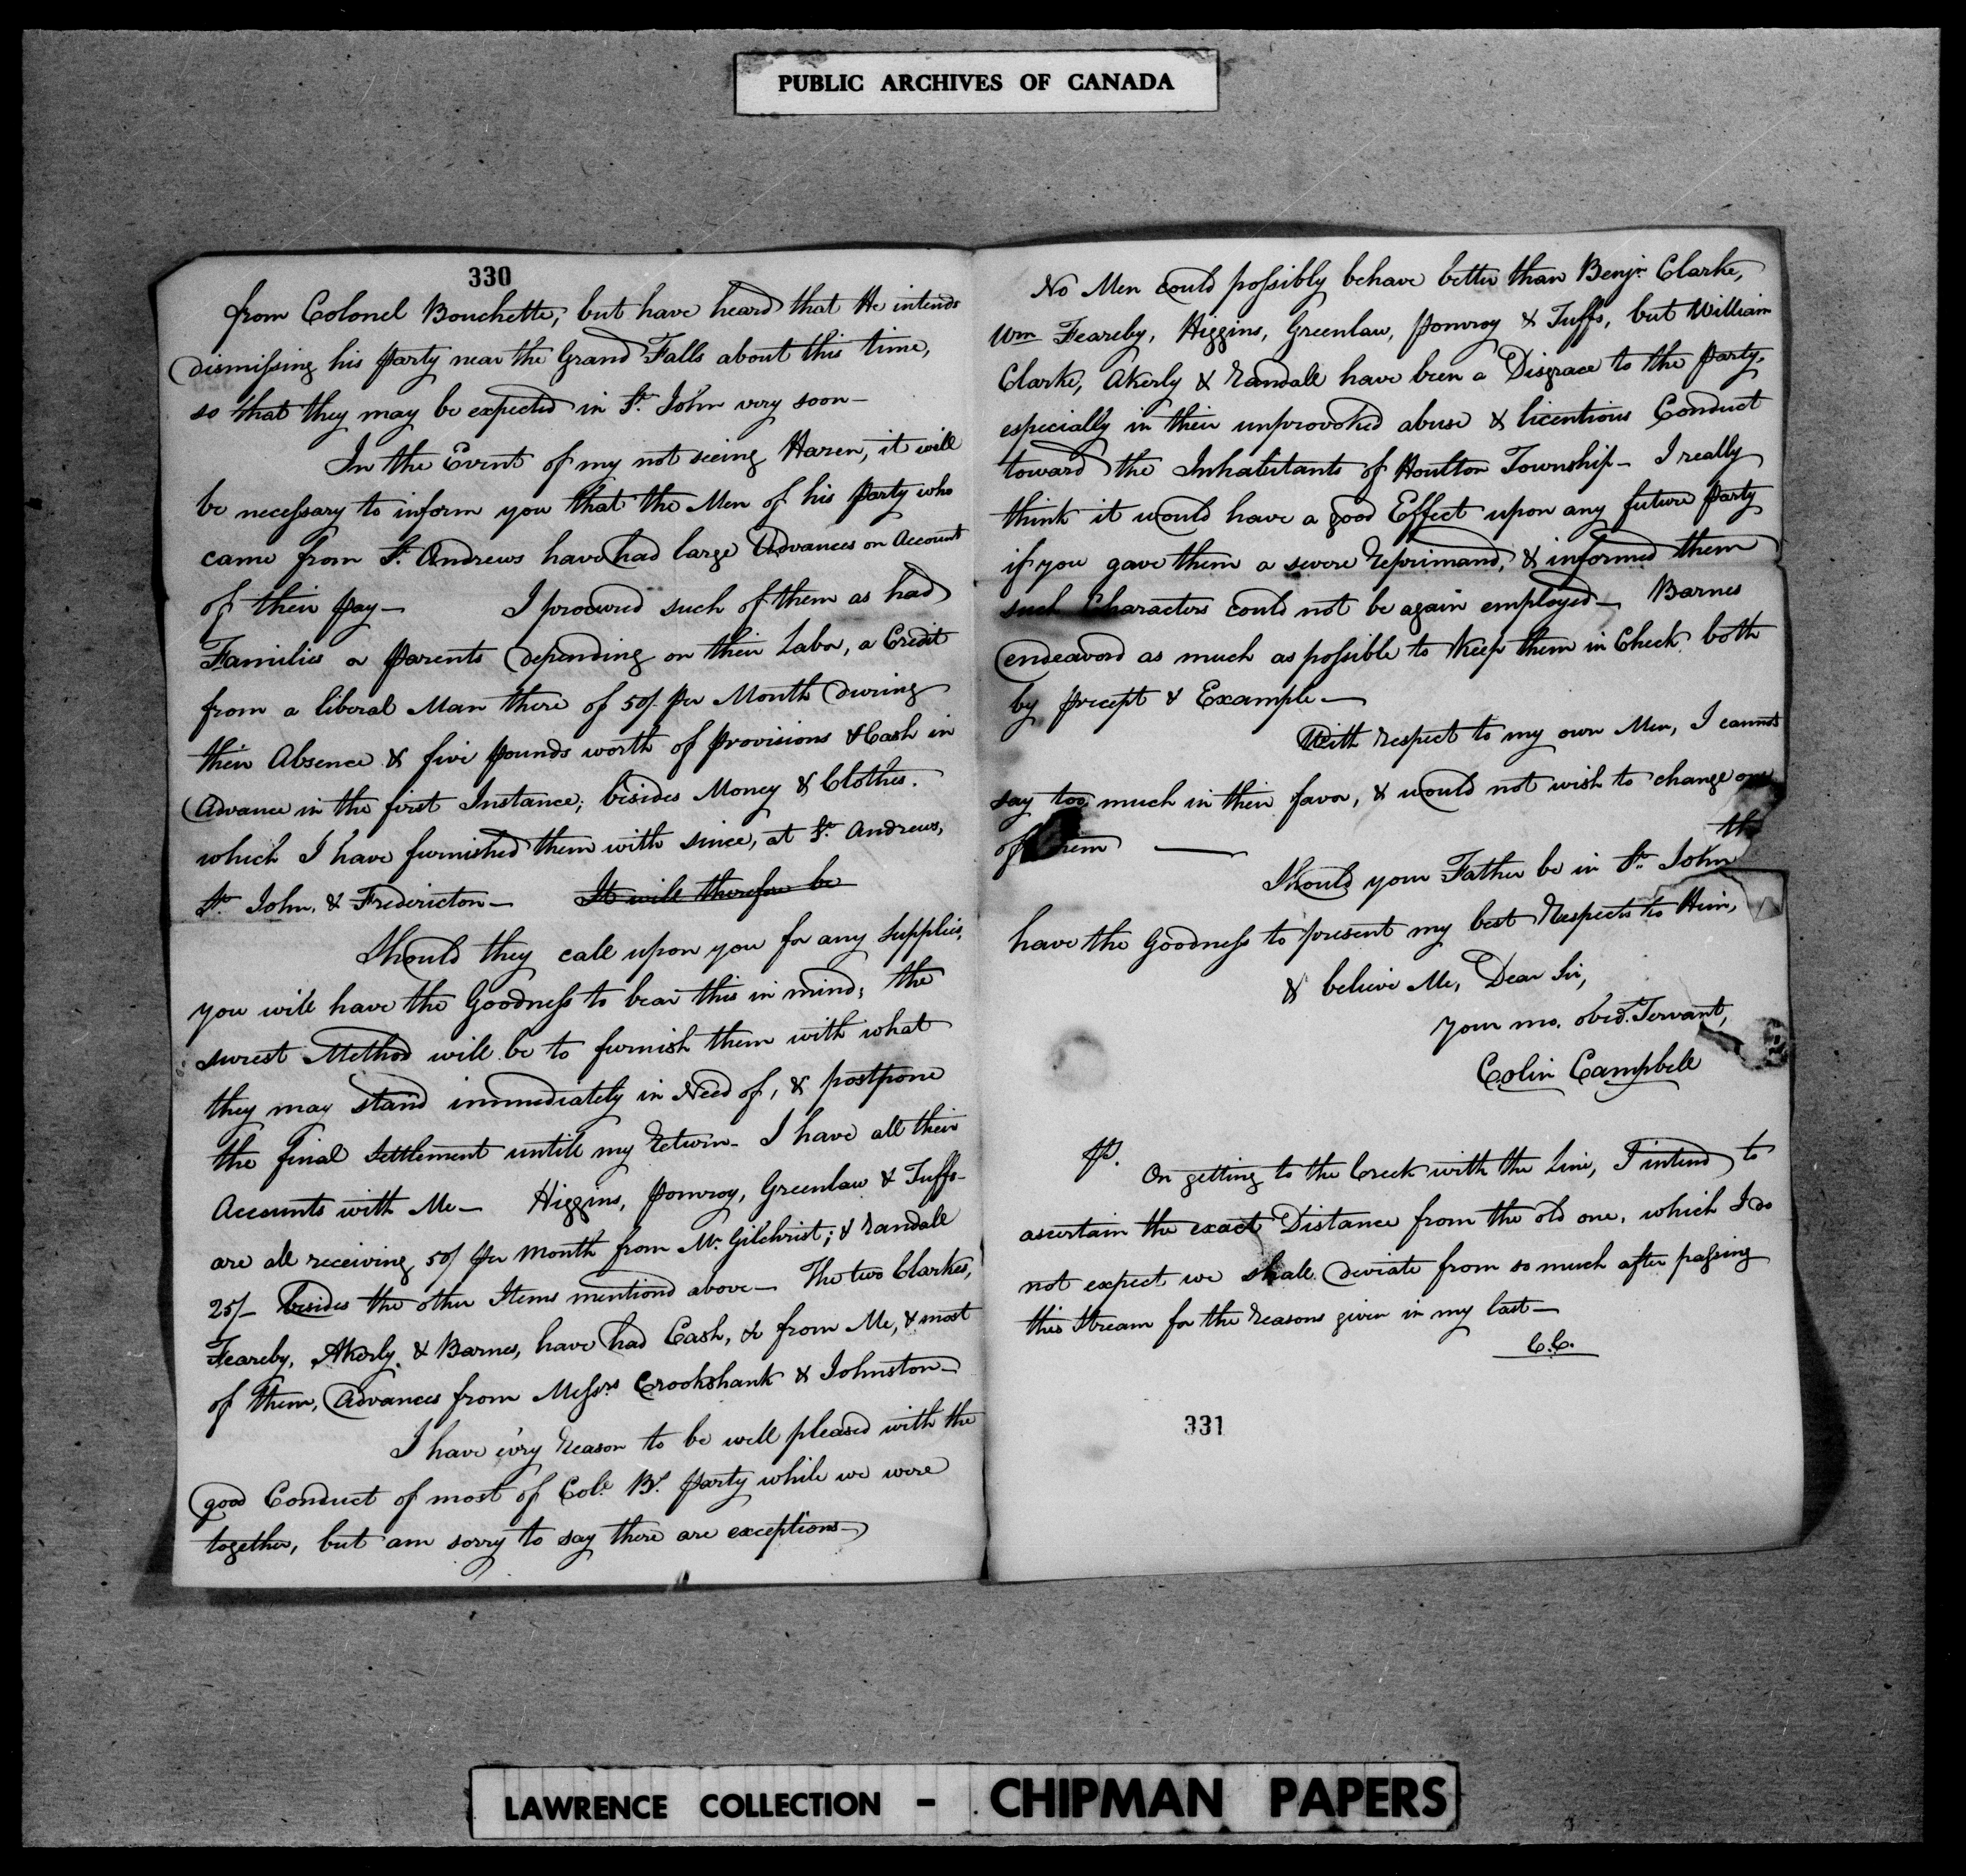 PUBLIC ARCHIVES OF CANADA
330
from Colonel Bouchette, but have heard that He intends
dismissing his party near the Grand Falls about this time,
so that they may be expected in St. John very soon—
In the Event of my not seeing Hazen, it will
be necessary to inform you that the Men of his party who
came from St. Andrews have had large Advances on Account
of their pay— I procured such of them as had
Families or parents depending on their Labor, a Credit
from a liberal Man there of 50/. per Month during
their Absence & five pounds worth of provisions & Cash in
Advance in the first Instance; besides Money & Clothes.
which I have furnished them with since, at St. Andrews,
St. John, & Fredericton— It will therefore be
Should they call upon you for any supplies,
you will have the Goodness to bear this in mind; the
surest Method will be to furnish them with what
they may stand immediately in Need of, & postpone
the final Settlement untill my return— I have all their
Accounts with Me— Higgins, pomroy, Greenlaw & Tuffs—
are all receiving 50/ per Month from Mr. Gilchrist; & Randall
25/— besides the other Items mentiond above— The two Clarkes,
Feareby, Akerly, & Barnes, have had Cash, &c from Me, & most
of them, Advances from Messrs Crookshank & Johnston—
I have ev'ry reason to be well pleased with the
good Conduct of most of Col. B's. party while we were
together, but am sorry to say there are exceptions—
No Men could possibly behave better than Benjn. Clarke,
Wm Feareby, Higgins, Greenlaw, pomroy & Tuffs, but William
Clarke, Akerly & Randall have been a Disgrace to the party,
especially in their unprovoked abuse & licentious Conduct
toward the Inhabitants of Houlton Township— I really
think it would have a good Effect upon any future party
if you gave them a severe reprimand, & informed them
such Characters could not be again employed— Barnes
endeavord as much as possible to keep them in Check both
by precept & Example—
With respect to my own Men, I cannot
say too much in their favor, & would not wish to change one
of them —
Should your Father be in St. John
have the Goodness to present my best respects to Him,
& believe Me, Dear Sir,
your mo. obed. Servant,
Colin Campbell
Ps. On getting to the Creek with the Line, I intend to
ascertain the exact Distance from the old one, which I do
not expect we shall deviate from so much after passing
this Stream for the reasons given in my last—
C.C.
331
LAWRENCE COLLECTION - CHIPMAN PAPERS